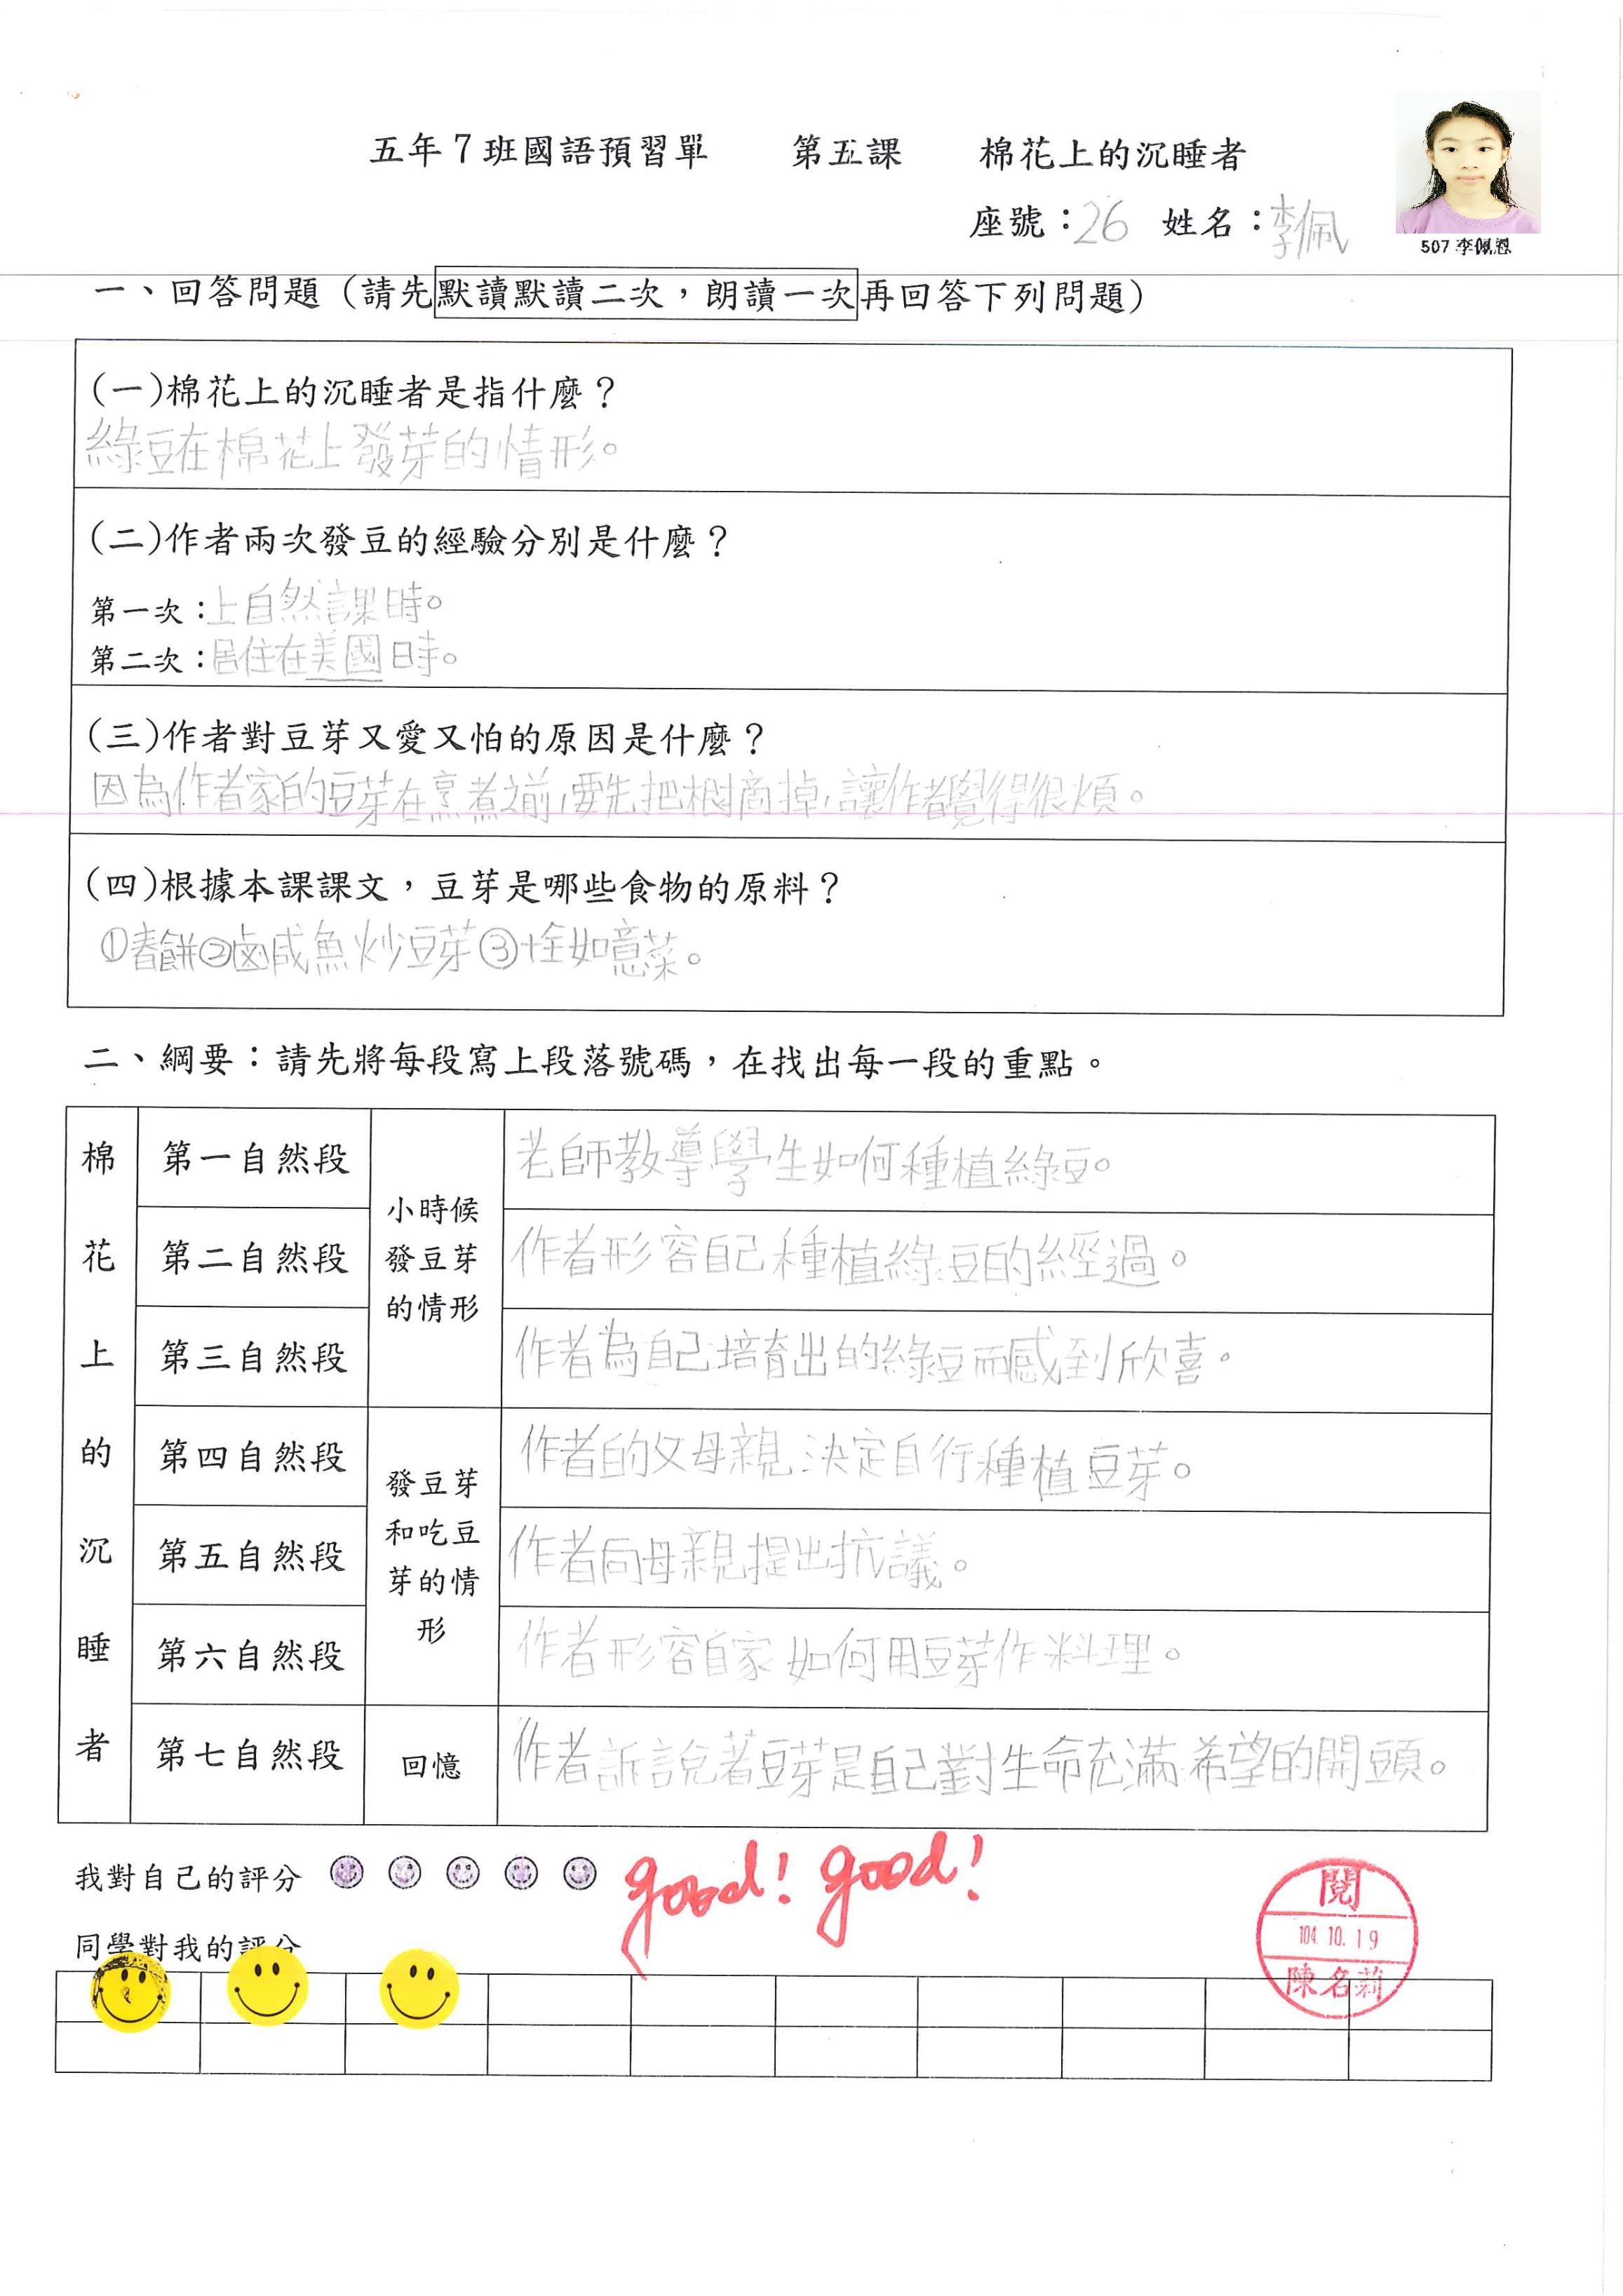 五年7班國語預習單 第五課 棉花上的沉睡者
座號：26 姓名：李佩
507 李佩恩
一、回答問題（請先默讀默讀二次，朗讀一次再回答下列問題）
(一)棉花上的沉睡者是指什麼？
綠豆在棉花上發芽的情形。
(二)作者兩次發豆的經驗分別是什麼？
第一次：上自然課時。
第二次：居住在美國時。
(三)作者對豆芽又愛又怕的原因是什麼？
因為作者家的豆芽在烹煮之前，要先把根摘掉，讓作者覺得很煩。
(四)根據本課課文，豆芽是哪些食物的原料？
①春餅②鹵咸魚炒豆芽③十全如意菜。
二、綱要：請先將每段寫上段落號碼，在找出每一段的重點。
棉花上的沉睡者
小時候發豆芽的情形
第一自然段 老師教導學生如何種植綠豆。
第二自然段 作者形容自己種植綠豆的經過。
第三自然段 作者為自己培育出的綠豆而感到欣喜。
發豆芽和吃豆芽的情形
第四自然段 作者的父母親決定自行種植豆芽。
第五自然段 作者向母親提出抗議。
第六自然段 作者形容自家如何用豆芽作料理。
第七自然段 回憶 作者訴說著豆芽是自己對生命充滿希望的開頭。
我對自己的評分 good! good!
同學對我的評分
閱
104.10.19
陳名莉